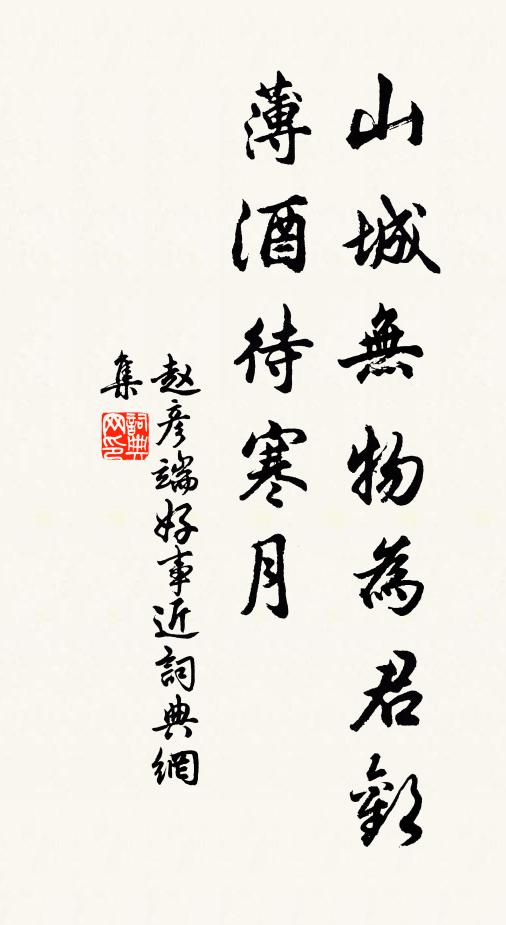 山城無物為君歡
薄酒待寒月
赵彦端好事近詞典網
集
詞典
网印